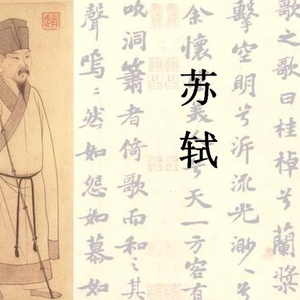 歌之歌曰桂棹兮蘭槳
擊空明兮泝流光渺〻兮
余懷 美 天一方客有
吹洞簫者倚歌而和之其
聲嗚〻然如怨如慕如
苏轼